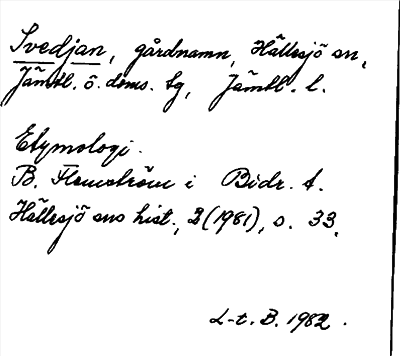 Svedjan, gårdnamn, Hällesjö sn,
Jämtl. ö. doms. tg, Jämtl. l.
Etymologi.
B. Flemström i Bidr. t.
Hällesjö sns hist., 2(1981), s. 33.
L-t. B. 1982.